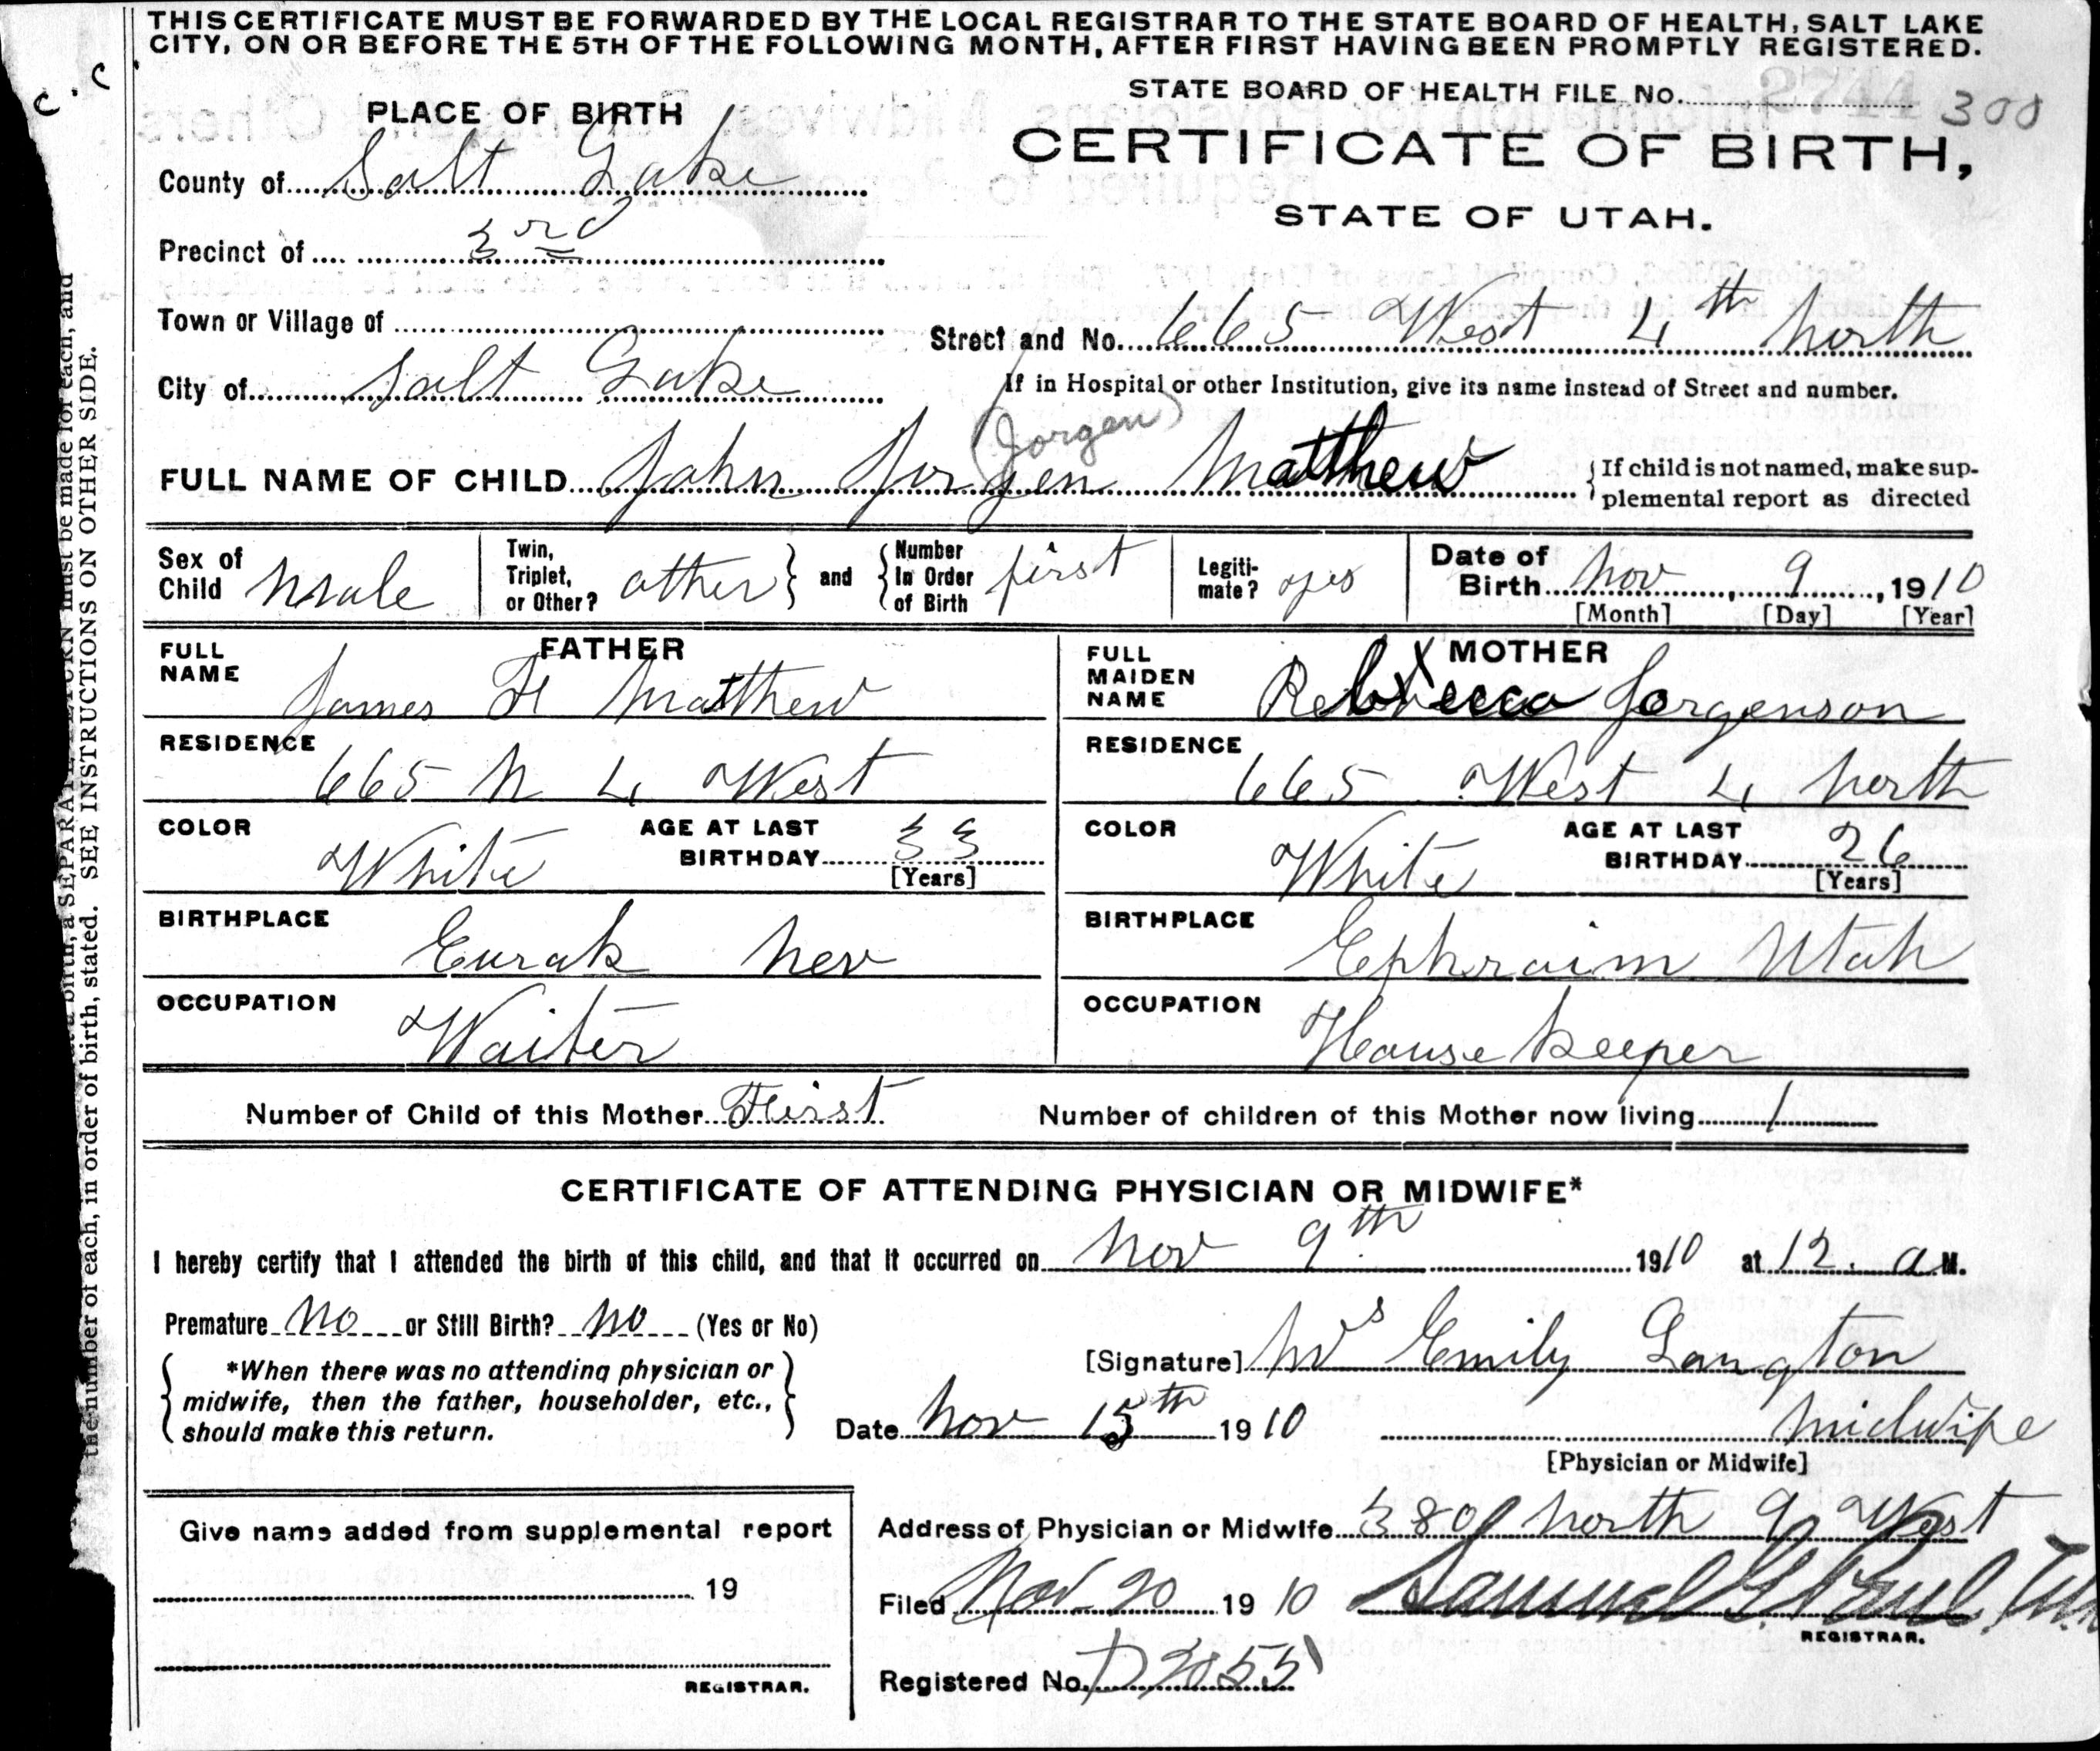 THIS CERTIFICATE MUST BE FORWARDED BY THE LOCAL REGISTRAR TO THE STATE BOARD OF HEALTH, SALT LAKE
CITY, ON OR BEFORE THE 5TH OF THE FOLLOWING MONTH, AFTER FIRST HAVING BEEN PROMPTLY REGISTERED.
C. C.
STATE BOARD OF HEALTH FILE No. 2744 308
PLACE OF BIRTH
CERTIFICATE OF BIRTH,
STATE OF UTAH.
County of Salt Lake
Precinct of 3rd
Town or Village of
Street and No. 665 West 4th North
City of Salt Lake
If in Hospital or other Institution, give its name instead of Street and number.
(Jorgen)
FULL NAME OF CHILD John Jorgen Matthew
If child is not named, make sup-
plemental report as directed
Sex of Child Male
Twin, Triplet, or Other? other and Number In Order of Birth first
Legiti-mate? yes
Date of Birth Nov 9, 1910
[Month] [Day] [Year]
FATHER
FULL NAME James H Matthew
MOTHER
FULL MAIDEN NAME Rebecca Jorgenson
RESIDENCE 665 N 4 West
RESIDENCE 665 West 4 North
COLOR White AGE AT LAST BIRTHDAY 33 [Years]
COLOR White AGE AT LAST BIRTHDAY 26 [Years]
BIRTHPLACE Eurak Nev
BIRTHPLACE Ephraim Utah
OCCUPATION Waiter
OCCUPATION House keeper
Number of Child of this Mother First Number of children of this Mother now living 1
CERTIFICATE OF ATTENDING PHYSICIAN OR MIDWIFE*
I hereby certify that I attended the birth of this child, and that it occurred on Nov 9th 1910 at 12. a M.
Premature No or Still Birth? No (Yes or No)
*When there was no attending physician or
midwife, then the father, householder, etc.,
should make this return.
[Signature] Mrs Emily Langton
Date Nov 15th 1910 Midwife
[Physician or Midwife]
Give name added from supplemental report
19
REGISTRAR.
Address of Physician or Midwife 380 North 9 West
Filed Nov 20 1910 Samuel G. Paul
REGISTRAR.
Registered No. D2055
birth, a SEPARATE RETURN must be made for each, and
the number of each, in order of birth, stated. SEE INSTRUCTIONS ON OTHER SIDE.